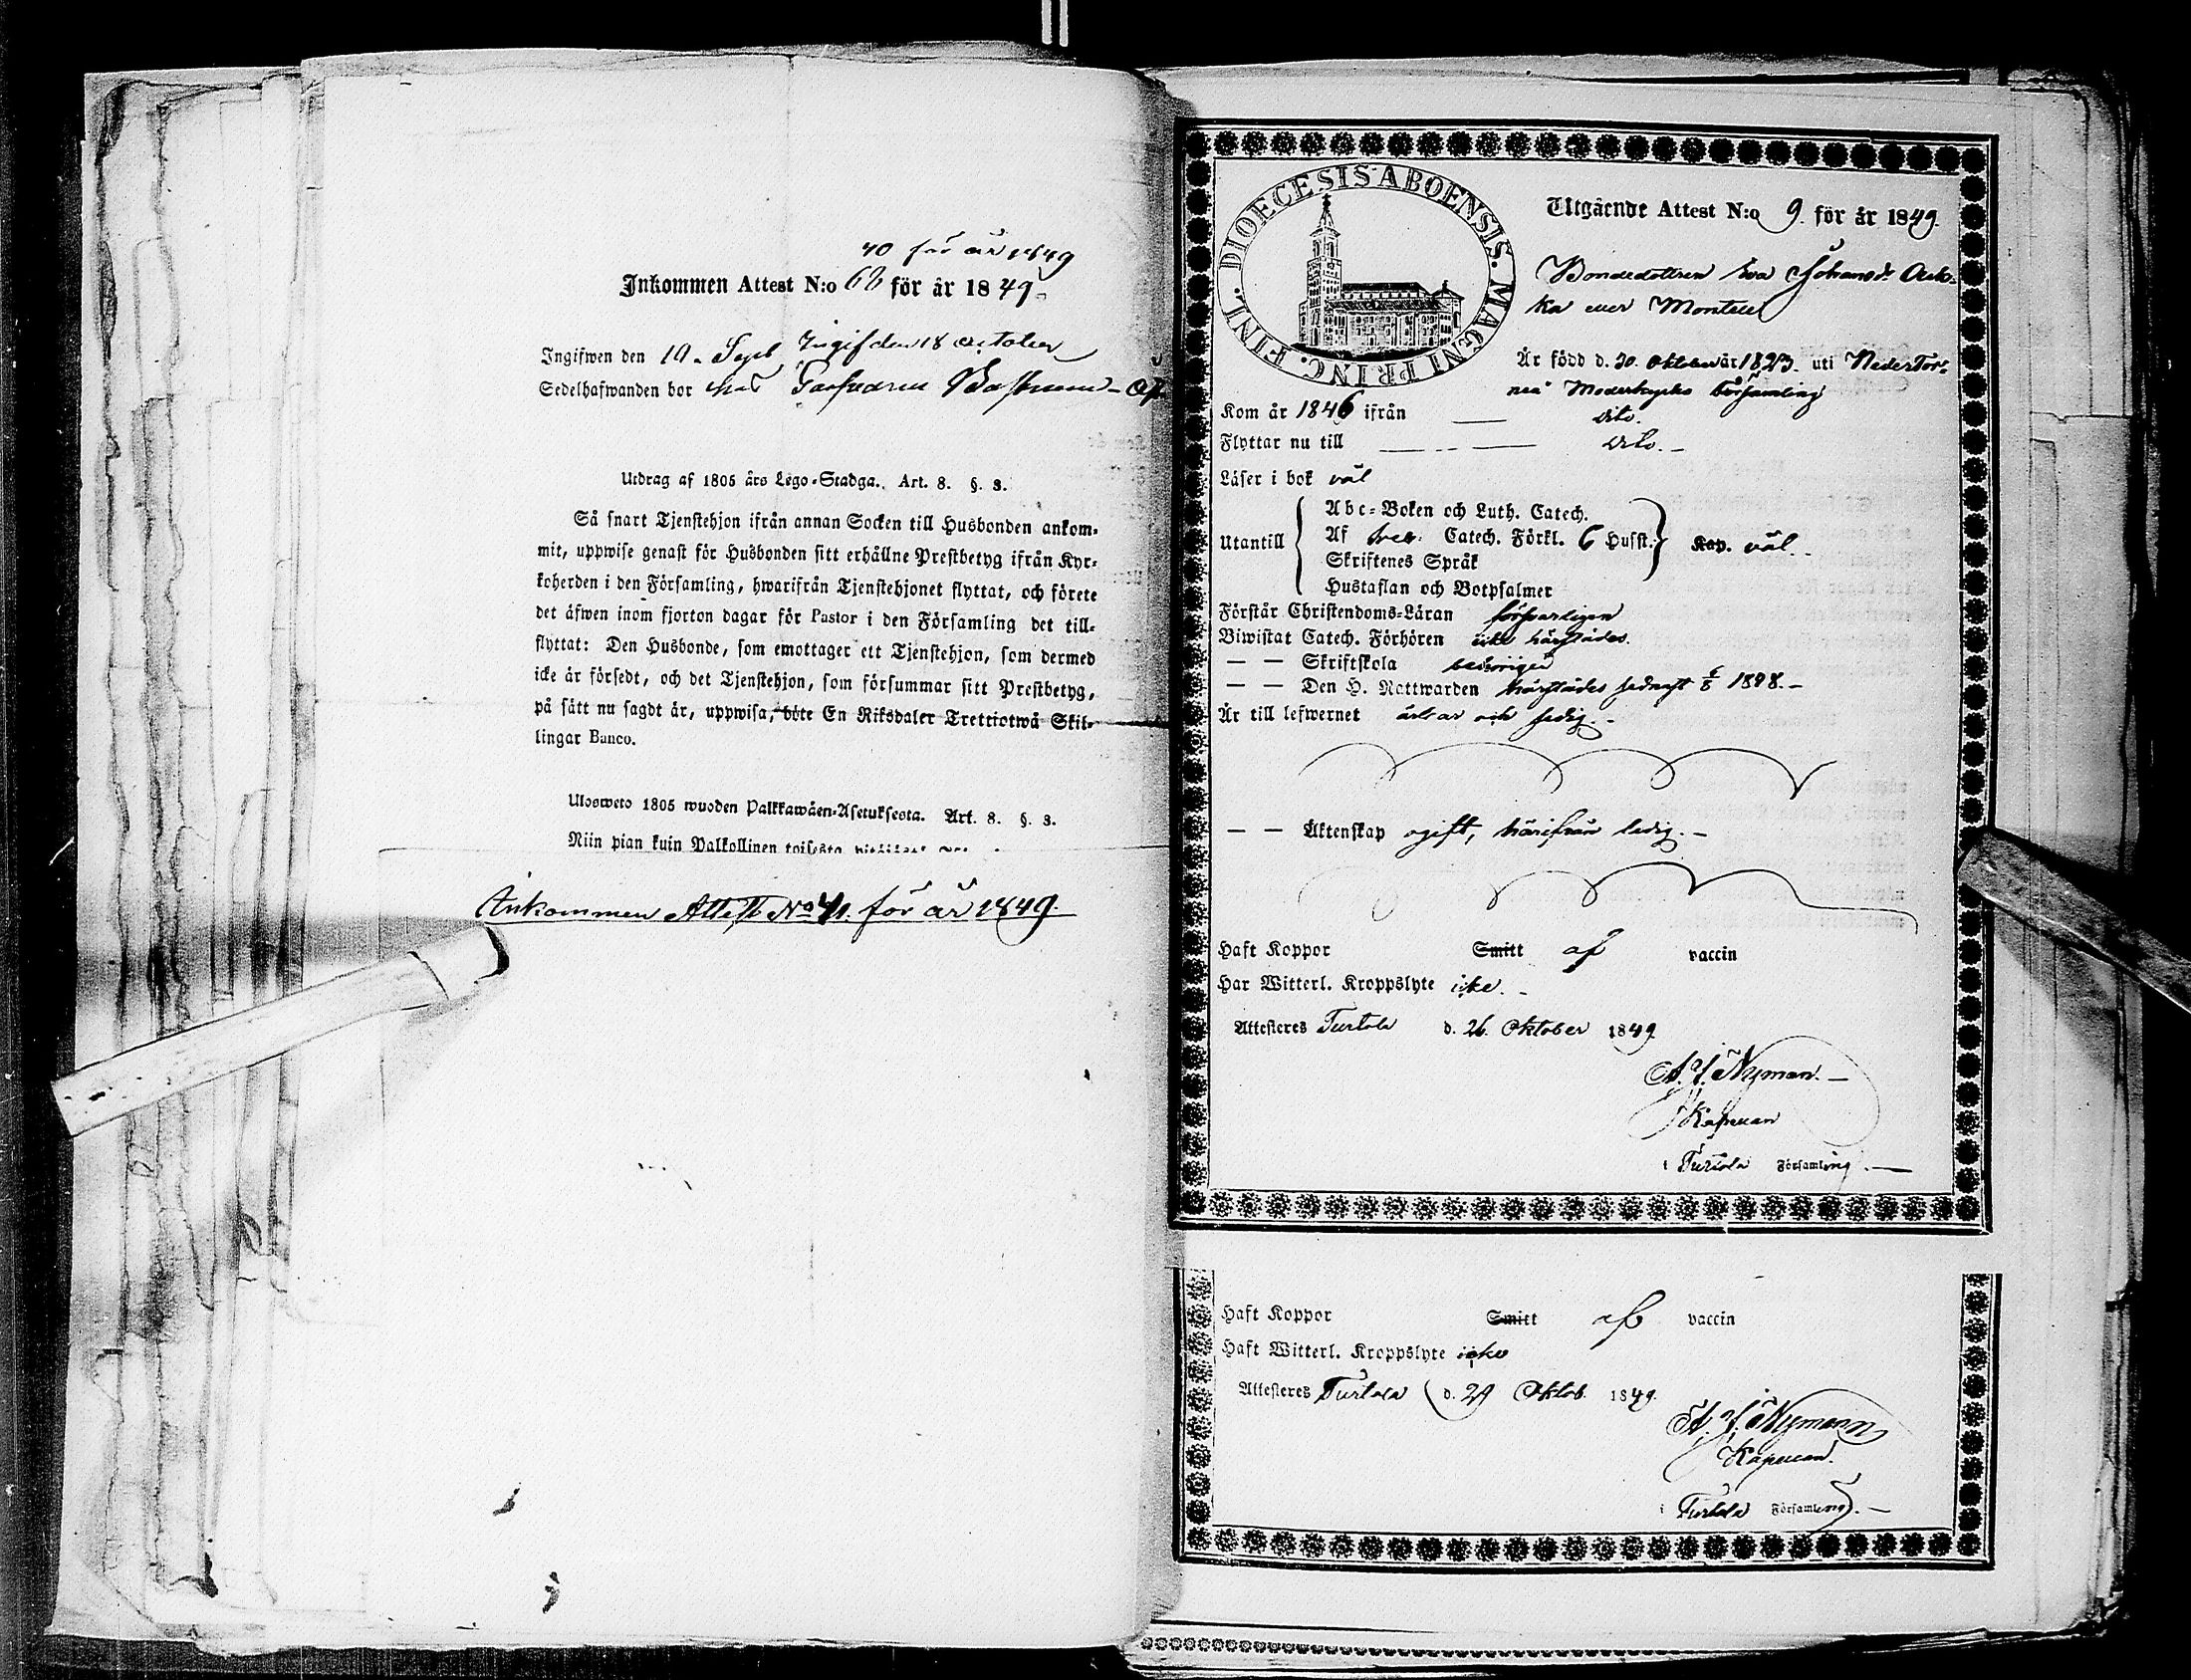 40 för år 1849
Inkommen Attest N:o 62 för år 1849.
Ingifwen den 10. Sept Ingif den 18 October
Sedelhafwanden bor hos
Utdrag af 1805 års Lego-Stadga. Art. 8. §. 3.
Så snart Tjenstehjon ifrån annan Socken till Husbonden ankom-
mit, uppwise genast för Husbonden sitt erhållne Prestbetyg ifrån Kyr-
koherden i den Församling, hwarifrån Tjenstehjonet flyttat, och förete
det äfwen inom fjorton dagar för Pastor i den Församling det till-
flyttat: Den Husbonde, som emottager ett Tjenstehjon, som dermed
icke är försedt, och det Tjenstehjon, som försummar sitt Prestbetyg,
på sätt nu sagdt är, uppwisa, böte En Riksdaler Trettiotwå Skil-
lingar Banco.
Ulosweto 1805 wuoden Palkkawäen-Asetuksesta. Art. 8. §. 3.
Niin pian kuin Palkollinen toisesta
Inkommen Attest No 41. för år 1849.
DIOECESIS ABOENSIS. MAGNI PRINC. FINL.
Utgående Attest N:o 9. för år 1849.
Bondedottren Eva Johansdr
ka eller Montell
Är född d. 30. Oktober år 1823. uti NederTor-
neå Moderkyrko Församling
Kom år 1846 ifrån — dito.
Flyttar nu till — — dito. —
Läser i bok väl
Utantill
Abc-Boken och Luth. Catech.
Af Sveb. Catech. Förkl. 6 Husst.
Skriftenes Språk
Hustaflan och Botpsalmer
Kap. väl.
Förstår Christendoms-Läran försvarligen
Biwistat Catech. Förhören icke härstädes.
— — Skriftskola
— — Den H. Nattwarden härstädes sednast 6/8 1848. —
Är till lefwernet ärbar och fredig. -
— — Äktenskap ogift, härifrån ledig. —
Haft Koppor Smitt af vaccin
Har Witterl. Kroppslyte icke. -
Attesteres Turtola d. 26. Oktober 1849
A. J. Nyman. —
Kapellan
i Turtola Församling. —
Haft Koppor Smitt af vaccin
Haft Witterl. Kroppslyte icke
Attesteres Turtola d. 29 Oktob. 1849.
A. J. Nyman
Kapellan.
i Turtola Församling. —